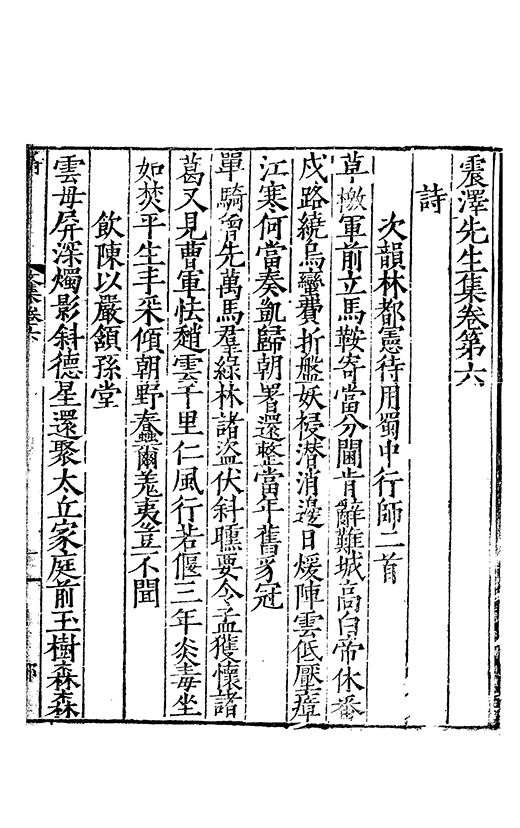 震澤先生集卷第六
詩
次韻林都憲待用蜀中行師二首
草檄軍前立馬鞍寄當分閫肯辭難城高白帝休畨
戍路繞烏蠻費折盤妖祲潜消邊日煖陣雲低壓瘴
江寒何當奏凱歸朝署還整當年舊豸冠
單騎曾先萬馬羣綠林諸盜伏斜曛要令孟獲懷諸
葛又見曹軍怯趙雲千里仁風行若偃三年炎毒坐
如焚平生丰采傾朝野蠢爾羌夷豈不聞
飲陳以嚴頷孫堂
雲母屏深燭影斜德星還聚太丘家庭前玉樹森森
文集卷六